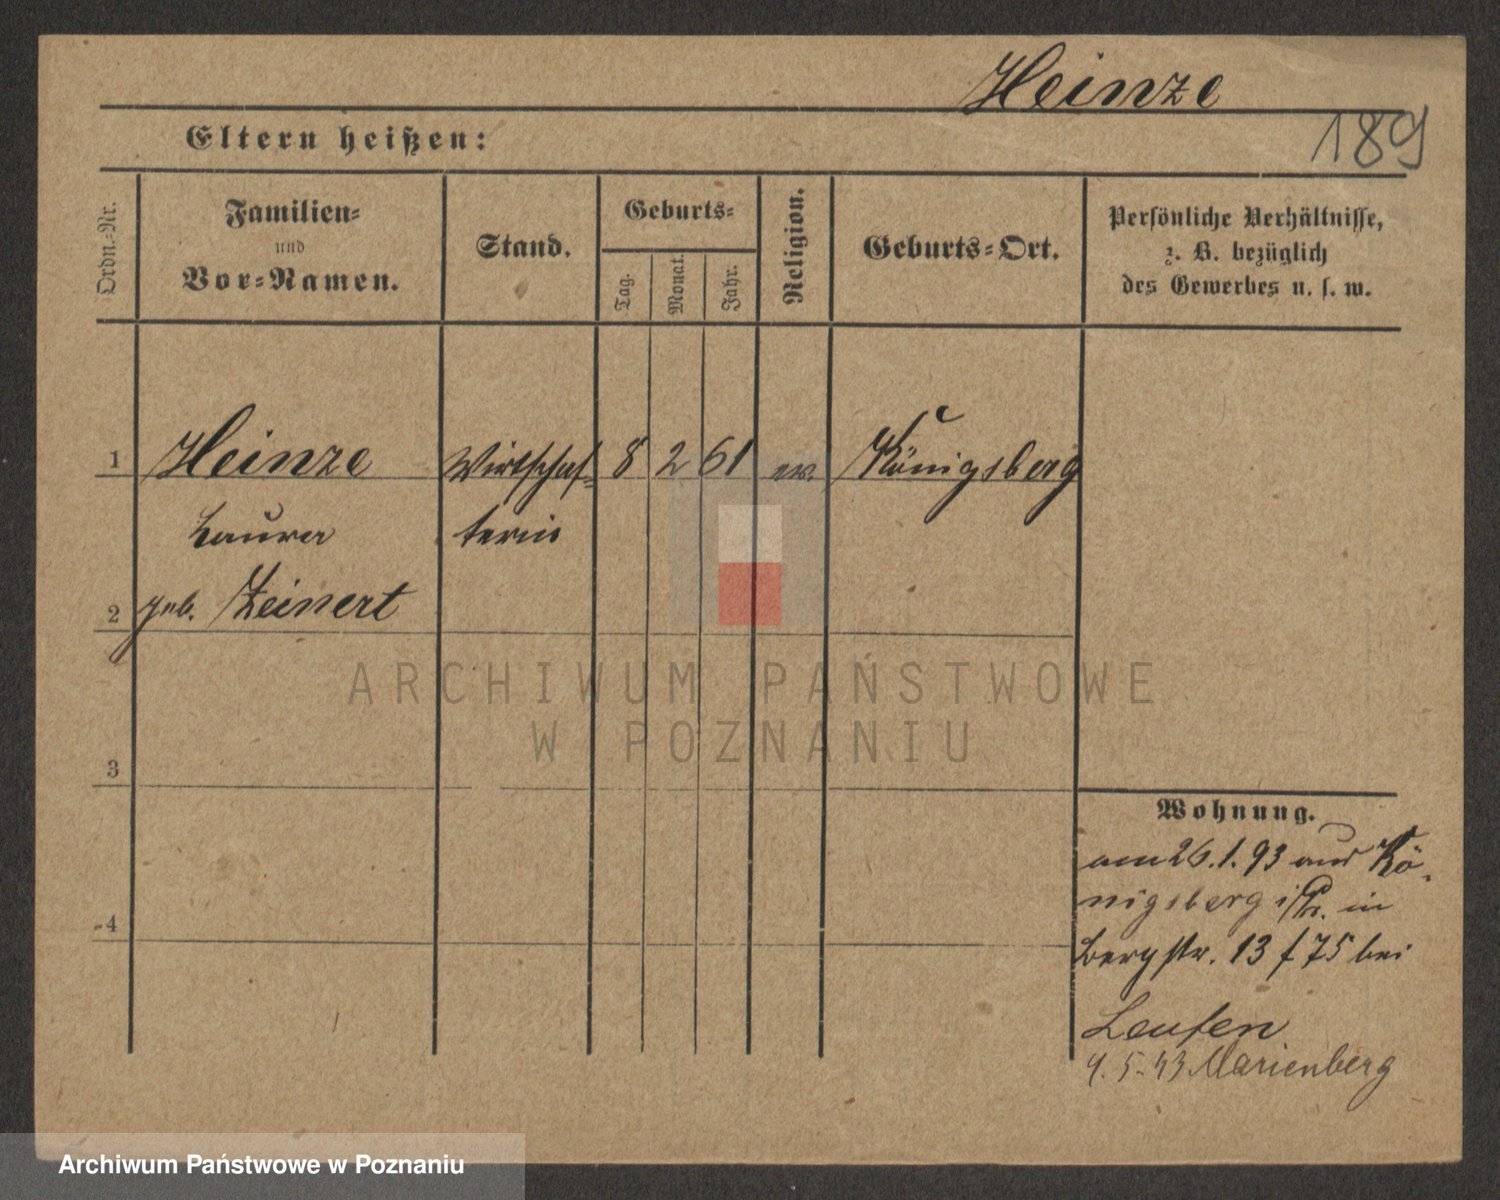 Heinze
189
Eltern heißen:
Ordn.-Nr.
Familien-
und
Vor-Namen.
Stand.
Geburts-
Tag.
Monat.
Jahr.
Religion.
Geburts-Ort.
Persönliche Verhältnisse,
z. B. bezüglich
des Gewerbes u. s. w.
1 Heinze Wirtschaf- 8 2 61 ev. Königsberg
Laura terin
2 geb. Zeinert
3
4
Wohnung.
am 26.1.93 aus Kö-
nigsberg i/Pr. in
Bergstr. 13 f 75 bei
4. 5. 93 Marienberg
ARCHIWUM PAŃSTWOWE
W POZNANIU
Archiwum Państwowe w Poznaniu